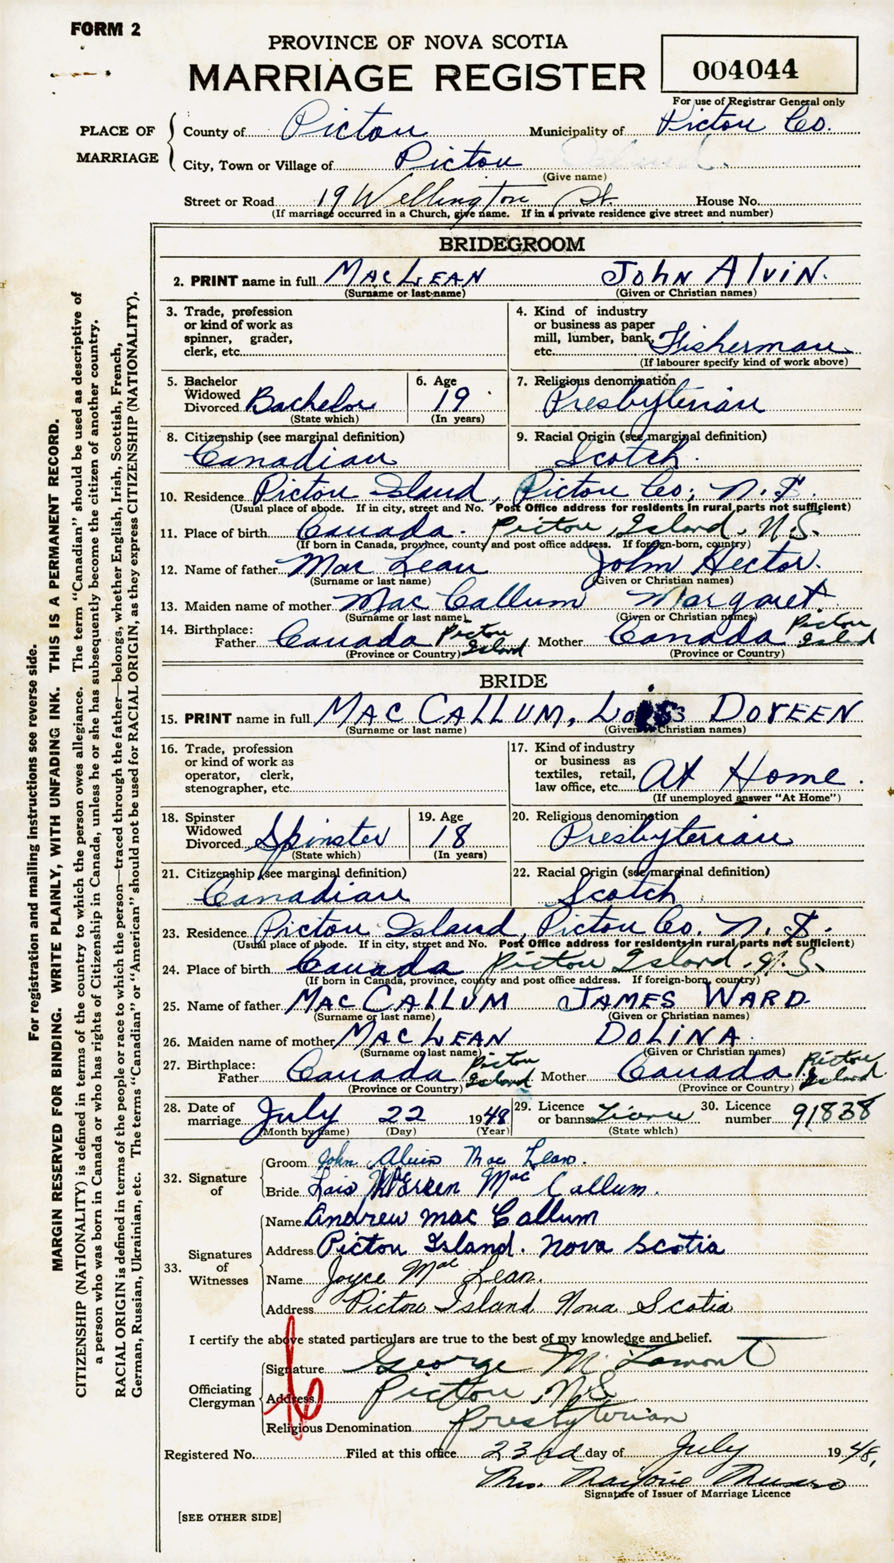 FORM 2
PROVINCE OF NOVA SCOTIA
MARRIAGE REGISTER
004044
For use of Registrar General only
PLACE OF MARRIAGE
County of Pictou Municipality of Pictou Co.
City, Town or Village of Pictou
(Give name)
Street or Road 19 Wellington St. House No.
(If marriage occurred in a Church, give name. If in a private residence give street and number)
BRIDEGROOM
2. PRINT name in full MacLean John Alvin.
(Surname or last name) (Given or Christian names)
3. Trade, profession or kind of work as spinner, grader, clerk, etc.
4. Kind of industry or business as paper mill, lumber, bank, etc. Fisherman
(If labourer specify kind of work above)
5. Bachelor Widowed Divorced Bachelor
(State which)
6. Age 19
(In years)
7. Religious denomination Presbyterian
8. Citizenship (see marginal definition) Canadian
9. Racial Origin (see marginal definition) Scotch
10. Residence Pictou Island, Pictou Co; N.S.
(Usual place of abode. If in city, street and No. Post Office address for residents in rural parts not sufficient)
11. Place of birth Canada. Pictou Island, N.S.
(If born in Canada, province, county and post office address. If foreign-born, country)
12. Name of father Mac Lean John Hector.
(Surname or last name) (Given or Christian names)
13. Maiden name of mother Mac Callum Margaret
(Surname or last name) (Given or Christian names)
14. Birthplace: Father Canada Pictou Island Mother Canada Pictou Island
(Province or Country) (Province or Country)
BRIDE
15. PRINT name in full MacCallum, Lois Doreen
(Surname or last name) (Given or Christian names)
16. Trade, profession or kind of work as operator, clerk, stenographer, etc.
17. Kind of industry or business as textiles, retail, law office, etc. At Home.
(If unemployed answer "At Home")
18. Spinster Widowed Divorced Spinster
(State which)
19. Age 18
(In years)
20. Religious denomination Presbyterian
21. Citizenship (see marginal definition) Canadian
22. Racial Origin (see marginal definition) Scotch
23. Residence Pictou Island, Pictou Co. N.S.
(Usual place of abode. If in city, street and No. Post Office address for residents in rural parts not sufficient)
24. Place of birth Canada Pictou Island. N.S.
(If born in Canada, province, county and post office address. If foreign-born, country)
25. Name of father MacCallum James Ward
(Surname or last name) (Given or Christian names)
26. Maiden name of mother MacLean Dolina
(Surname or last name) (Given or Christian names)
27. Birthplace: Father Canada Pictou Island Mother Canada Pictou Island
(Province or Country) (Province or Country)
28. Date of marriage July 22 1948
(Month by name) (Day) (Year)
29. Licence or banns Licence
(State which)
30. Licence number 91838
32. Signature of
Groom John Alvin Mac Lean.
Bride Lois Doreen Mac Callum.
33. Signatures of Witnesses
Name Andrew Mac Callum
Address Pictou Island. Nova Scotia
Name Joyce Mac Lean.
Address Pictou Island Nova Scotia
I certify the above stated particulars are true to the best of my knowledge and belief.
Officiating Clergyman
Signature George M. Lamont
Address Pictou N.S.
Religious Denomination Presbyterian
Registered No. Filed at this office 23rd day of July 1948,
Mrs. Marjorie Munro
Signature of Issuer of Marriage Licence
[SEE OTHER SIDE]
For registration and mailing instructions see reverse side.
MARGIN RESERVED FOR BINDING. WRITE PLAINLY, WITH UNFADING INK. THIS IS A PERMANENT RECORD.
CITIZENSHIP (NATIONALITY) is defined in terms of the country to which the person owes allegiance. The term "Canadian" should be used as descriptive of
a person who was born in Canada or who has rights of Citizenship in Canada, unless he or she has subsequently become the citizen of another country.
RACIAL ORIGIN is defined in terms of the people or race to which the person—traced through the father—belongs, whether English, Irish, Scottish, French,
German, Russian, Ukrainian, etc. The terms "Canadian" or "American" should not be used for RACIAL ORIGIN, as they express CITIZENSHIP (NATIONALITY).